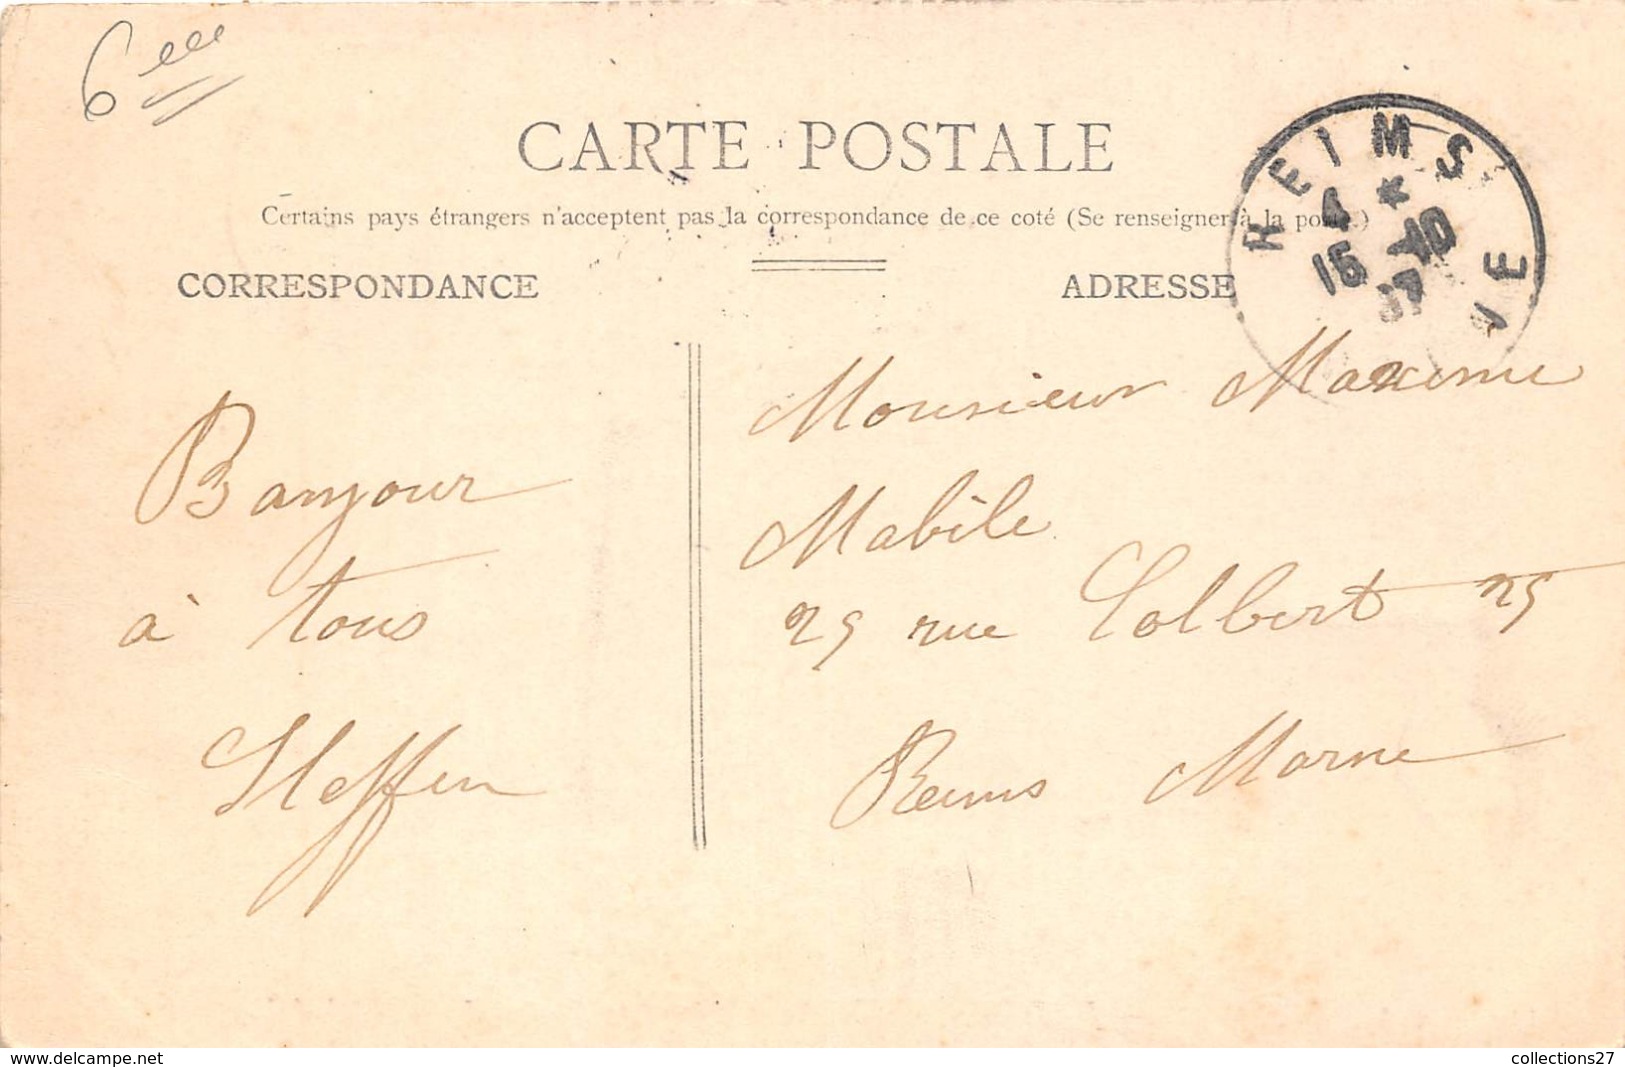 6eee
CARTE POSTALE
Certains pays étrangers n'acceptent pas la correspondance de ce coté (Se renseigner à la poste.)
CORRESPONDANCE
ADRESSE
REIMS
4 *
15 -10
07
Bonjour
à tous
Steffen
Monsieur Maxime
Mabile
25 rue Colbert 25
Reims Marne
www.delcampe.net
collections27